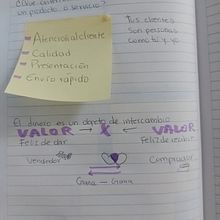 ¿Que
un producto o servicio?
- Atención al cliente
- Calidad
- Presentación
- Envio rápido
Tus clientes
son personas
como tú y yo
El dinero es un objeto de intercambio
VALOR → X ← VALOR
Feliz de dar
Feliz de recibir
Vendedor
Comprador
Gana - Gana